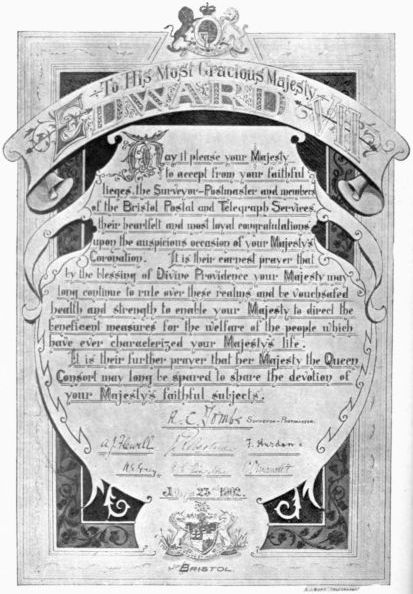 To His Most Gracious Majesty
EDWARD VII
May it please your Majesty
to accept from your faithful
lieges, the Surveyor-Postmaster and members
of the Bristol Postal and Telegraph Services
their heartfelt and most loyal congratulations
upon the auspicious occasion of your Majesty's
Coronation. It is their earnest prayer that
by the blessing of Divine Providence your Majesty may
long continue to rule over these realms and be vouchsafed
health and strength to enable your Majesty to direct the
beneficent measures for the welfare of the people which
have ever characterized your Majesty's life.
It is their further prayer that her Majesty the Queen
Consort may long be spared to share the devotion of
your Majesty's faithful subjects.
R. C. Tombs Surveyor-Postmaster
23rd 1902.
BRISTOL.